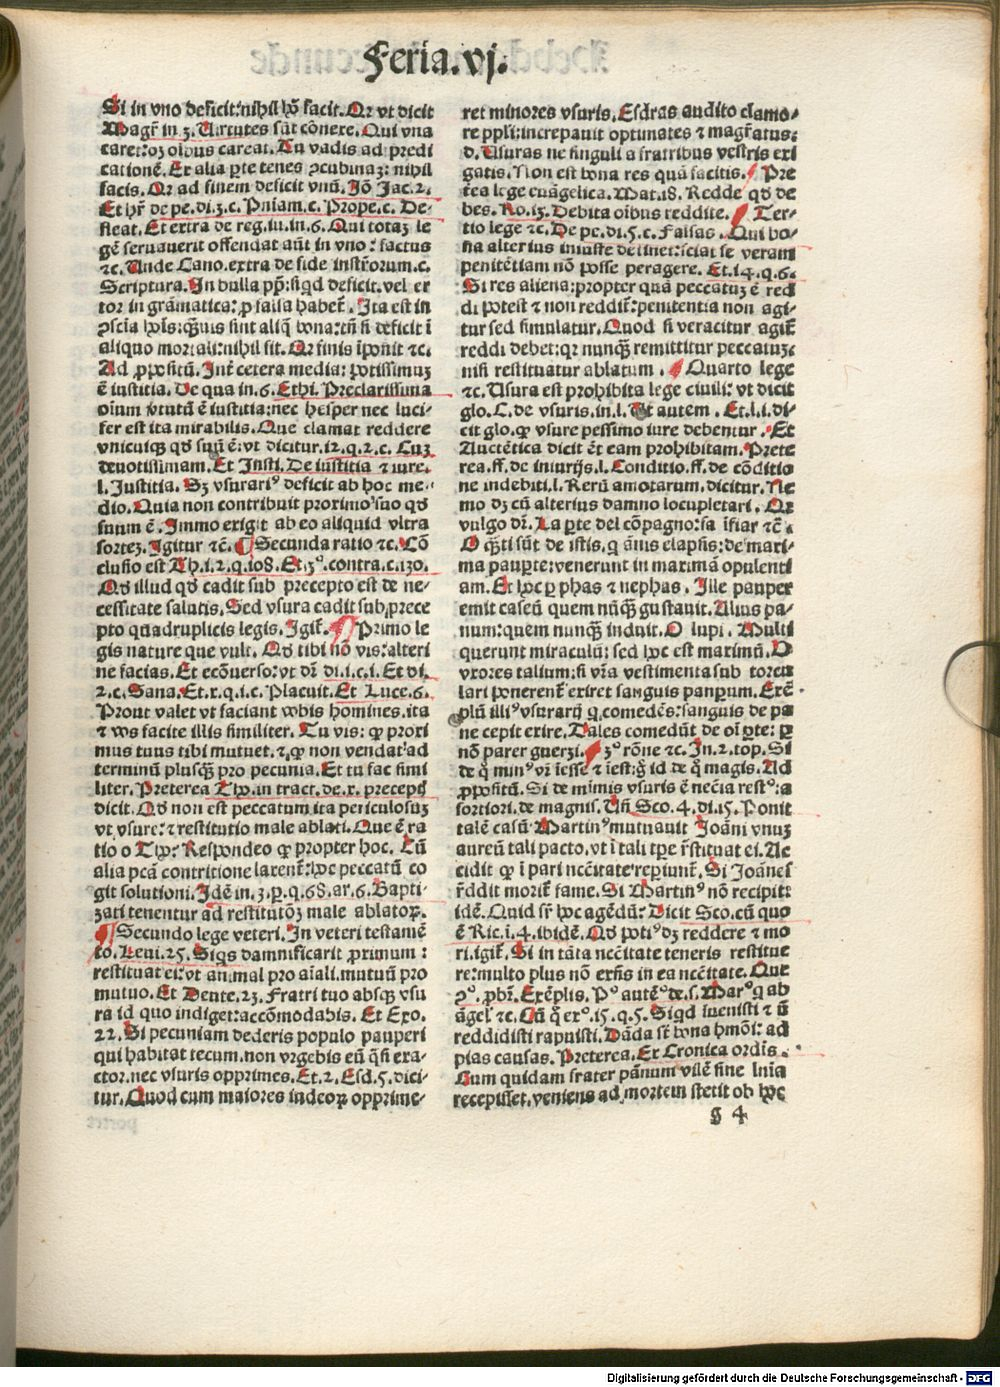 Feria.vj.
Si in vno deficit:nihil hō facit.Qr vt dicit
Magr̄ in 3. Uirtutes sūt cōnexe.Qui vna
caret:oēs oībus careat.Tu vadis ad predi
cationē.Ex alia pte tenes ꝯcubinaꝫ: nihil
facis.Qr ad finem deficit vnū. Jō Jac.2.
Et hr̄ de pe.di.3.c. Pniam.c.Prope.c. De-
fleat.Et extra de reg.iu.in.6.Qui totaꝫ le
gē seruauerit offendat aūt in vno: factus
⁊c.Unde Cano.extra de fide instr̄orum.c.
Scriptura.In bulla pp̄:siqd deficit.vel er
tor in grāmatica:ꝓ falsa habet᷑. Ita est in
ꝯscīa hoīs:qᷓuis sint aliq̄ bona:tn̄ si deficit ī
aliquo mortali:nihil fit.Qr finis īponit ⁊c.
Ad ꝓpositū.Int̄ cetera media: potissimuꝫ
ē iustitia. De qua in.6.Ethi.Preclarissima
oīum v̄tutū ē iustitia:nec hesper nec luci-
fer est ita mirabilis.Que clamat reddere
vnicuiqꝫ qd̄ suū ē:vt dicitur.12.q.2.c. Cuꝫ
deuotissimam.Et Insti.De iustitia ⁊ iure.
l.Justitia.Sꝫ vsurariꝰ deficit ab hoc me-
dio.Quia non contribuit proximo suo qd̄
suum ē.Immo exigit ab eo aliquid vltra
sortez.Igitur ⁊c̄.¶Secunda ratio ⁊c. Cō
clusio est Th.1.2.q.108.Et.3º.contra.c.130.
Qd̄ illud qd̄ cadit sub precepto est de ne-
cessitate salutis.Sed vsura cadit sub prece
pto quadruplicis legis.Igit᷑.¶Primo le
gis nature que vult. Qd̄ tibi nō vis:alteri
ne facias.Et ecōuerso:vt dr̄ di.1.c.1.Et di.
2.c.Sana.Et.x.q.1.c.Placuit.Et Luce.6.
Prout valet vt faciant vobis homines.ita
⁊ vos facite illis similiter. Tu vis: ꝙ proxi
mus tuus tibi mutuet.⁊.ꝙ non vendat ad
terminū plusqᷓꝫ pro pecunia.Et tu fac simi
liter.Preterea Tho.in tract.de.x.precepꝭ
dicit.Qd̄ non est peccatum ita periculosuꝫ
vt vsure:⁊ restitutio male ablati.Que ē ra
tio o Tho: Respondeo ꝙ propter hoc. Cū
alia pcā contritione laxent᷑:hoc peccatū eo
git solutioni.Idē in.3.p.q.68.ar.6.Bapti-
zati tenentur ad restitutōꝫ male ablatoꝝ.
¶Secundo lege veteri.In veteri testamē
to.Leui.25.Siqs damnificarit proximum:
restituat ei:vt animal pro aīali.mutuū pro
mutuo.Et Deute.23.Fratri tuo absqꝫ vsu
ra id quo indiget:accōmodabis.Et Exo.
22.Si pecuniam dederis populo pauperi
qui habitat tecum.non vrgebis eū qᷓsi exa-
ctor.nec vsuris opprimes.Et.2.Esd.5.dici-
tur.Quod cum maiores iudeoꝝ opprime-
ret minores vsuris.Esdras audito clamo-
re ppli:increpauit optimates ⁊ magr̄atus:
d.Usuras ne singuli a fratribus vestris exi
gatis.Non est bona res quā facitis.¶Pre
terea lege euāgelica.Mat.18.Redde qd̄ de
bes.Ro.13.Debita oībus reddite.¶Ter-
tio lege ⁊c.De pe.di.5.c.Falsas. Qui bo-
na alterius iniuste detinet:sciat se veram
penitētiam nō posse peragere. Et.14.q.6.
Si res aliena:propter quā peccatuꝫ ē red
di potest ⁊ non reddit᷑:penitentia non agi
tur sed simulatur.Quod si veracitur agit᷑
reddi debet:qr nunqᷓꝫ remittitur peccatuꝫ.
nisi restituatur ablatum.¶Quarto lege
⁊c.Usura est prohibita lege ciuili: vt dicit
glo.C.de vsuris.in.l. Ut autem.Et.l.1.di-
cit glo.ꝙ vsure pessimo iure debentur. Et
Auctētica dicit ēt eam prohibitam.Prete
rea.ff.de iniurijs.l.Conditio.ff.de cōditio
ne indebiti.l.Rerū amotarum.dicitur.Ne
mo dꝫ cū alterius damno locupletari. Qr
vulgo dr̄.La pte del cōpagno:fa īfiar ⁊c̄.
O qᷓti sūt de istis.q ānis elapsis:de maxi-
ma paupte:venerunt in maximā opulenti
am.Et hoc ꝑ phas ⁊ nephas. Ille pauper
emit caseū quem nūqᷓꝫ gustauit.Alius pa-
num:quem nunqᷓꝫ induit.O lupi. Multi
querunt miraculū: sed hoc est maximū.O
vxores talium:si vr̄a vestimenta sub torcu
lari ponerent᷑ exiret sanguis pauperum.Exē-
plū illiꝰ vsurarij q comedēs:sanguis de pa
ne cepit exire.Tales comedūt de oī pte: ꝑ
nō parer guerzi.¶3º rōne ⁊c. In.2.top.Si
de q̄ minꝰ vr̄ īesse ⁊ īest:ḡ id de q̄ magis.Ad
ꝓpositū. Si de minimis vsuris ē necīa restº:a
fortiori.de magnis. Un̄ Sco.4.di.15.Ponit
talē casū Martinꝰ mutuauit Joāni vnuꝫ
aureū tali pacto.vt ī tali tpe r̄stituat ei.Ac
cidit ꝙ ī pari nc̄citate reperiunt᷑. Si Joānes
r̄ddit moriet᷑ fame. Si Martinꝰ nō recipit:
idē.Quid sr̄ hoc agēdū: Dicit Sco.cū quo
ē Ric.ī.4.ibidē.Qd̄ potiꝰ dꝫ reddere ⁊ mo
ri.igit᷑. Si in tāta nc̄citate teneris restitue
re:multo plus nō exn̄s in ea nc̄citate. Que
ꝯº.ꝓbr̄.Exēplis. Pº autēº de.s.Marº q ab
āgelº ⁊c.Cū q̄ exº.15.q.5. Siqd iuenisti ⁊ n̄
reddidisti rapuisti: Dāda sr̄ bona hmōi: ad
pias causas.Preterea.Ex Cronica ordīs.
Cum quidam frater pānum vilē sine lnīa
recepisset.veniens ad mortem stetit ob hoc
g 4
Digitalisierung gefördert durch die Deutsche Forschungsgemeinschaft - DFG